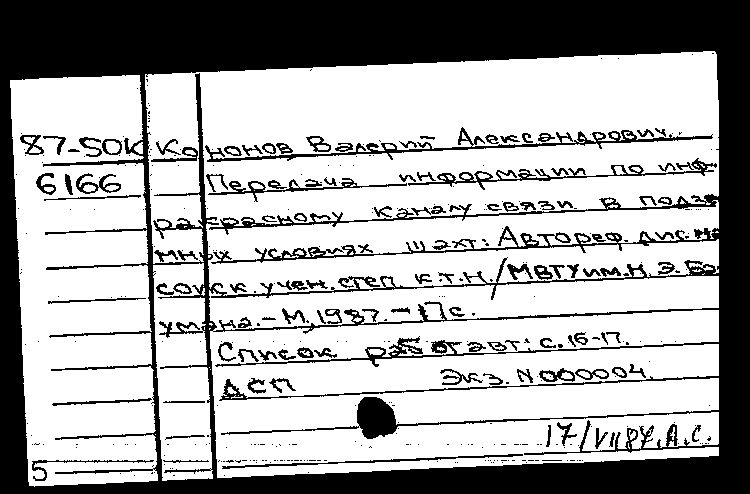 87-50К Кононов, Валерий Александрович.
6166 Передача информации по инф-
ракрасному каналу связи в подзе
мных условиях шахт: Автореф. дис. на
соиск. учен. степ. к.т.н./МВТУ им. Н. Э. Ба
умана.-М, 1987.-17с.
Список работ авт: с. 16-17.
ДСП Экз. N 000004.
17/VII 87. А.С.
5